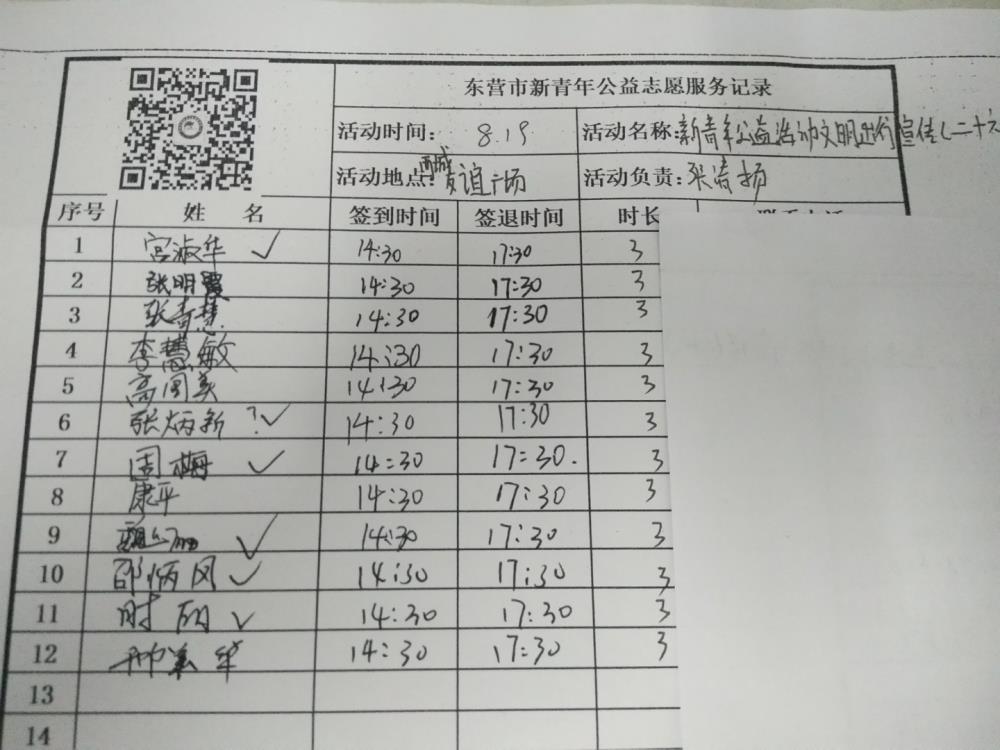 东营市新青年公益志愿服务记录
活动时间： 8.19 活动名称：新青年公益活动文明出行宣传（二十六
活动地点：西城友谊广场 活动负责：张清扬
序号 姓 名 签到时间 签退时间 时长
1 宫淑华 ✓ 14:30 17:30 3
2 张明霞 14:30 17:30 3
3 张青慧 14:30 17:30 3
4 李慧敏 14:30 17:30 3
5 高周美 14:30 17:30 3
6 张炳新 ?✓ 14:30 17:30 3
7 周梅 ✓ 14:30 17:30. 3
8 康平 14:30 17:30 3
9 ✓ 14:30 17:30 3
10 邵炳风 ✓ 14:30 17:30 3
11 时 ✓ 14:30 17:30 3
12 华 14:30 17:30 3
13
14